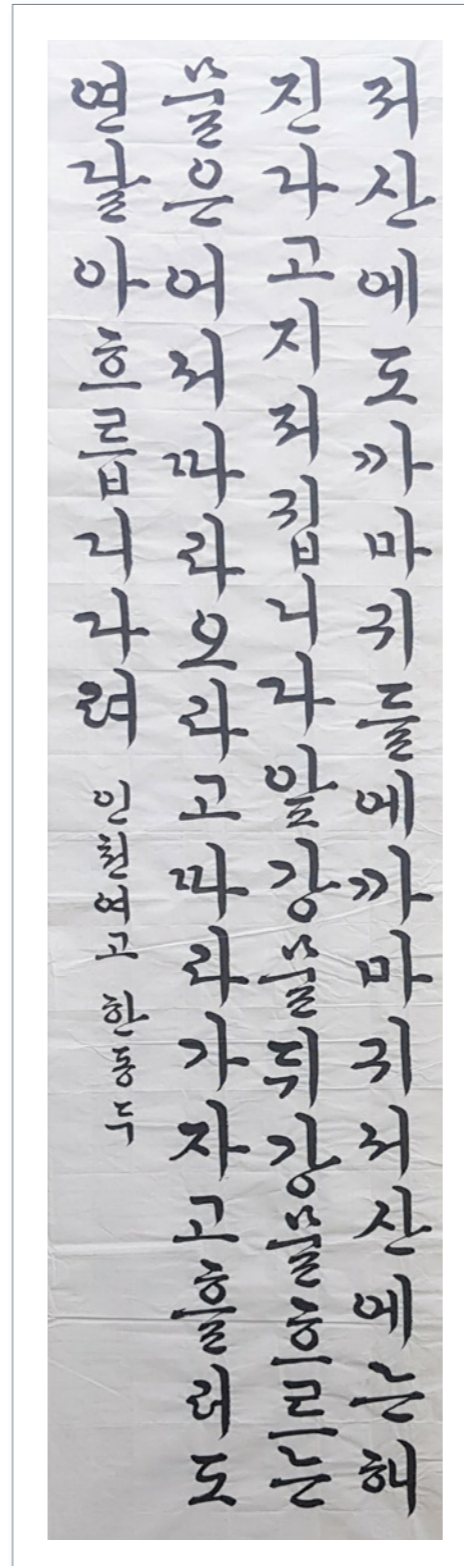 저산에도까마귀들에까마귀서산에는해
진다고지저귑니다앞강물뒤강물흐르는
물은어서따라오라고따라가자고흘러도
연달아흐릅디다려 인천여고 한동두